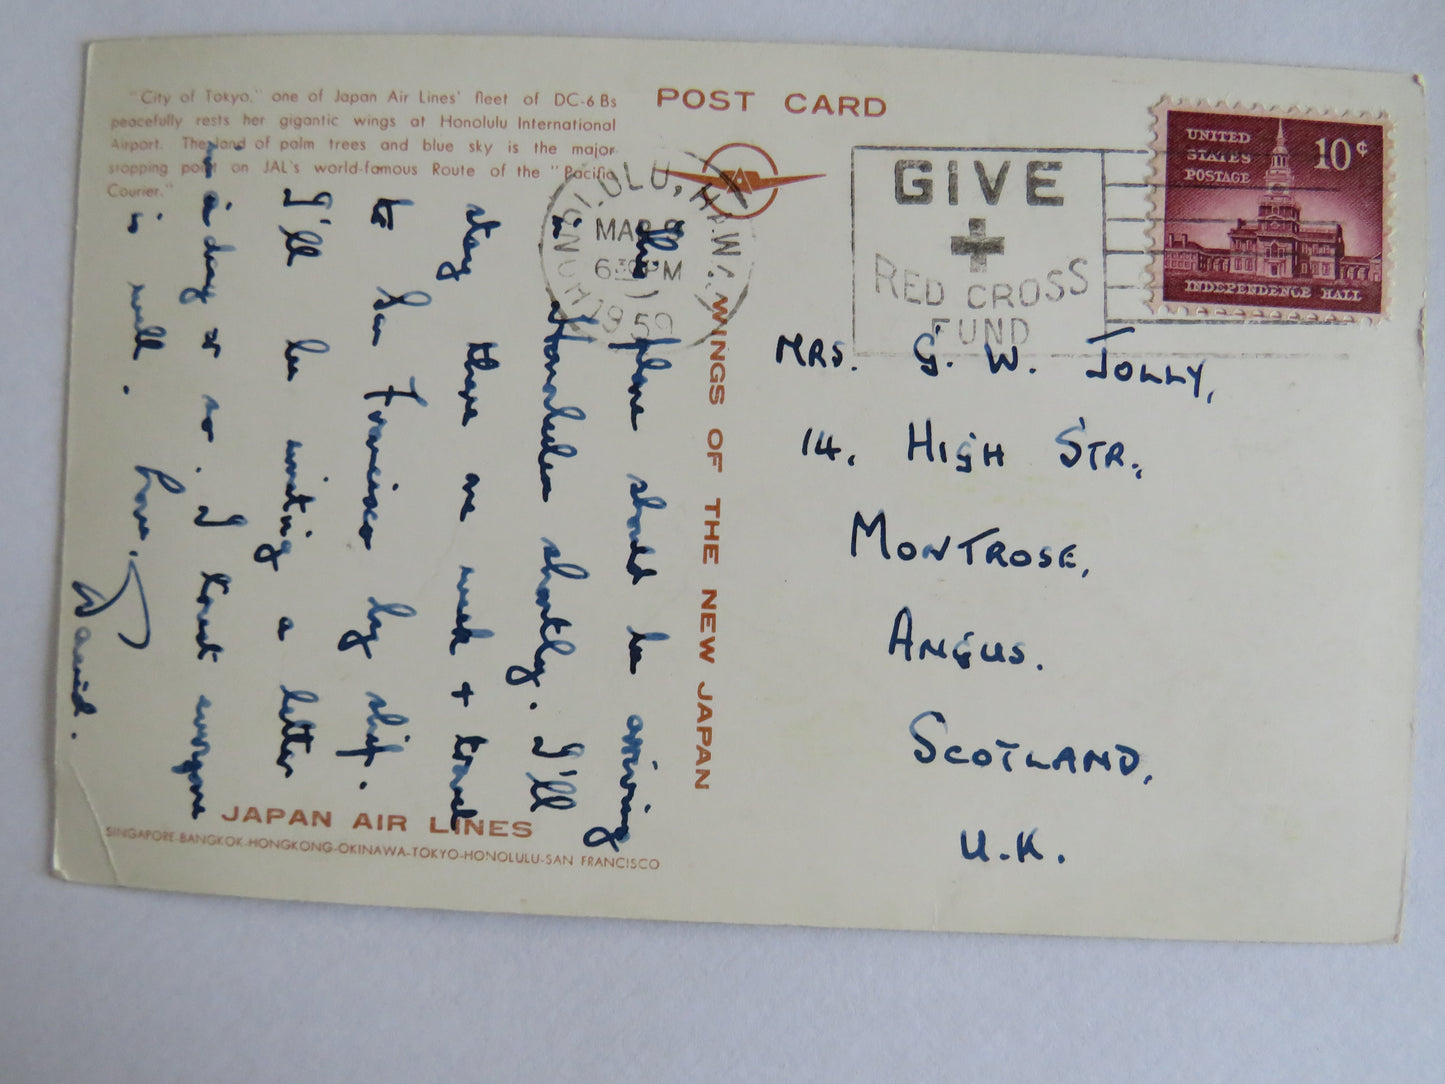 "City of Tokyo," one of Japan Air Lines' fleet of DC-6Bs
peacefully rests her gigantic wings at Honolulu International
Airport. The land of palm trees and blue sky is the major
stopping port on JAL's world-famous Route of the "Pacific
Courier."
POST CARD
HONOLULU, HAWAII
MAR 9
630PM
1959
GIVE
RED CROSS
FUND
UNITED
STATES
POSTAGE
10¢
INDEPENDENCE HALL
This plane should be arriving
in Honolulu shortly. I'll
stay there one week + travel
to San Francisco by ship.
I'll be writing a letter
in a day or so. I trust everyone
is well. Love,
David.
WINGS OF THE NEW JAPAN
MRS. G. W. JOLLY,
14, HIGH STR.,
MONTROSE,
ANGUS.
SCOTLAND,
U.K.
JAPAN AIR LINES
SINGAPORE-BANGKOK-HONGKONG-OKINAWA-TOKYO-HONOLULU-SAN FRANCISCO